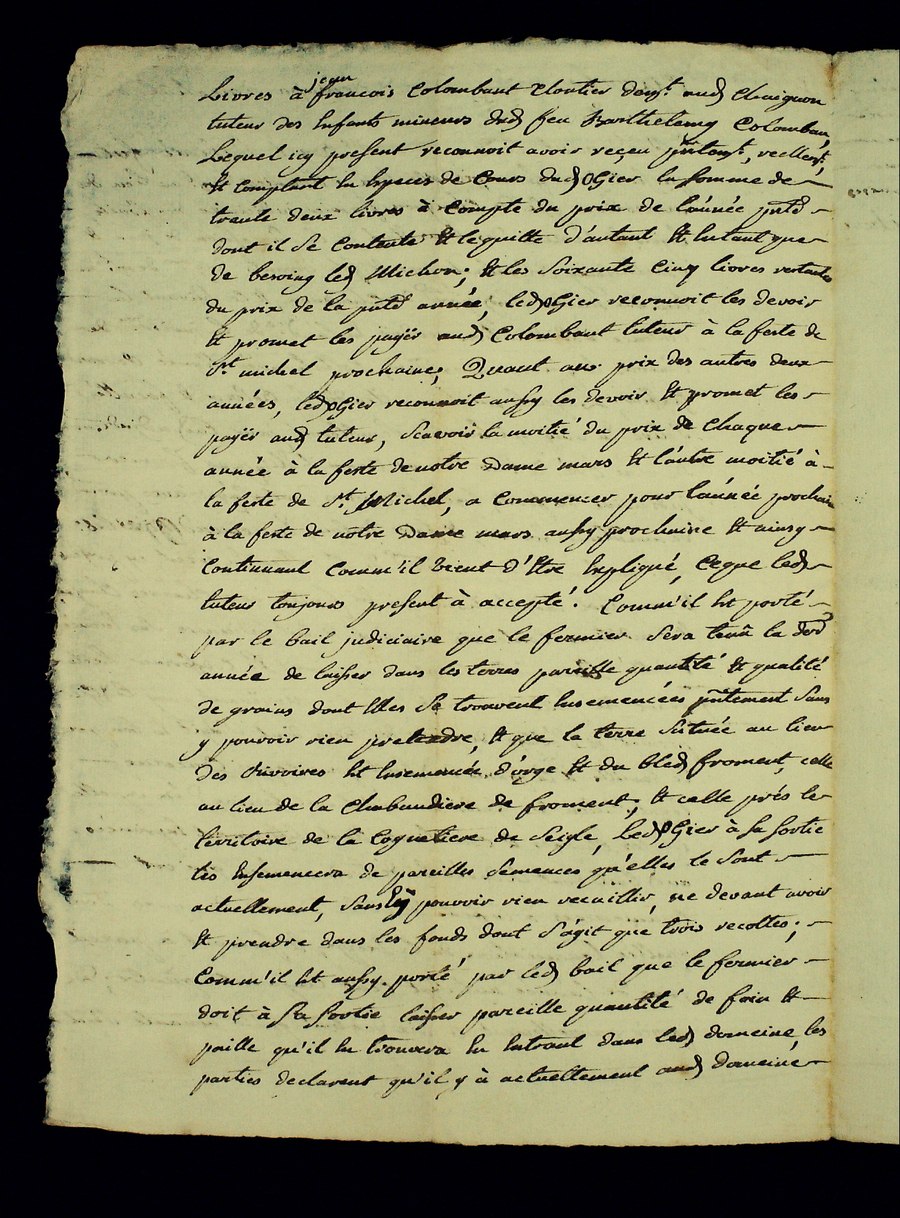 jean
Livres à francois Colombant Cloutier demt. aud Chaignon
tuteur des Enfants mineurs dud feu Barthelemy Colomban,
Lequel icy present reconnoit avoir reçeu pntemt., reellemt.
Et Comptant En Especes de Cours dud ogier la somme de
trente deux livres à Compte du prix de l'année pnte
dont il Se Contente Et le quitte d'autant Et Entant que
de besoing led Michon; Et les Soixante Cinq livres restantes
du prix de la pnte année, led ogier reconnoit les devoir
Et promet les payër aud Colombant tuteur à la feste de
St. michel prochaine; Quant aux prix des autres deux
années, led ogier reconnoit aussy les devoir Et promet les
payër aud tuteur, Scavoir la moitié du prix de Chaque
année à la feste de notre Dame mars Et l'autre moitié à
la feste de St. Michel, a Commencer pour l'année prochaine
à la feste de notre Dame mars aussy prochaine Et ainsy
Continuant Comm'il vient d'Etre Expliqué, Ceque led
tuteur toujours present à accepté. Comm'il Est porté
par le bail judiciaire que le fermier Sera tenû la derre
année de laisser dans les terres pareille quantité Et qualité
de grains dont Elles Se trouvent Ensemencées pntement Sans
y pouvoir rien pretendre, Et que la terre Scituée au lieu
des Ouvoires Est Ensemencée d'orge Et du bled froment, celle
au lieu de la Chabaudiere de froment; Et celle près le
territoire de la Coquetiere de Seigle, led ogier à Sa Sortie
les Ensemencera de pareilles Semences qu'elles le Sont
actuellement, Sans Ey pouvoir rien recuillir, ne devant avoir
Et prendre dans les fonds dont S'agit que trois recoltes;
Comm'il Est aussy porté par led bail que le fermier
doit à Sa Sortie laisser pareille quantité de foin Et
paille qu'il En trouvera En Entrant dans led domeine, les
parties declarent qu'il y à actuellement aud domeine